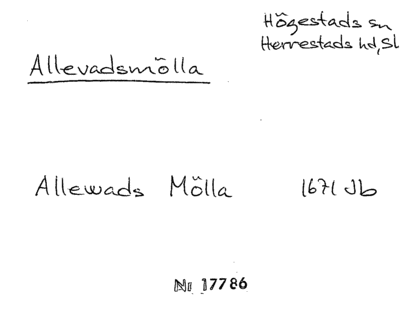 Högestads sn
Herrestads hd, Sk
Allevadsmölla
Allewads Mölla 1671 Jb
Nr 17786